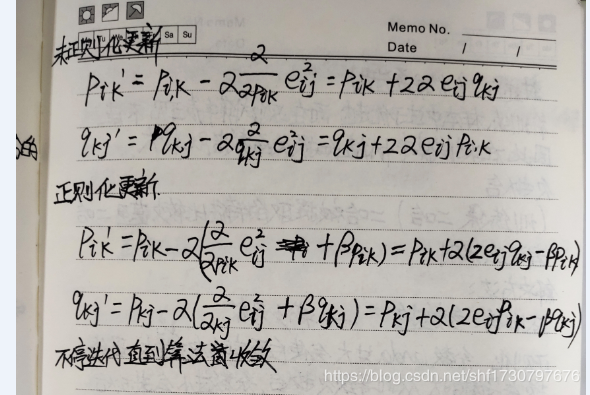 Memo No.
Date / /
Sa Su
未正则化更新
pik' = pi,k - 2 2/2pik eij² = pik + 22eij qkj
qkj' = qkj - 2 2/qkj eij² = qkj + 22eij pi.k
正则化更新.
pik' = pik - 2(2/2pik eij² + βpik) = pik + 2(2eij qkj - βpik)
qkj' = pkj - 2(2/2kj eij² + βqkj) = pkj + 2(2eij pik - βqkj)
不停迭代直到算法收敛
https://blog.csdn.net/shf1730797676